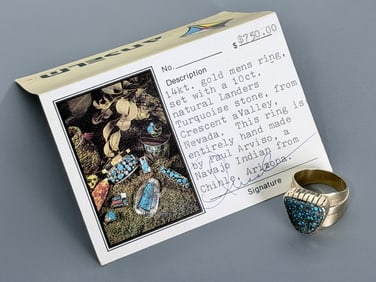 ANSELM
No.
$ $750.00
Description
14kt. gold mens ring,
set with a 10ct.
natural Landers
Turquoise stone, from
Crescent aValley,
Nevada. This ring is
entirely hand made
by Paul Arviso, a
Navajo Indian from
Chinle, Arizona.
Signature